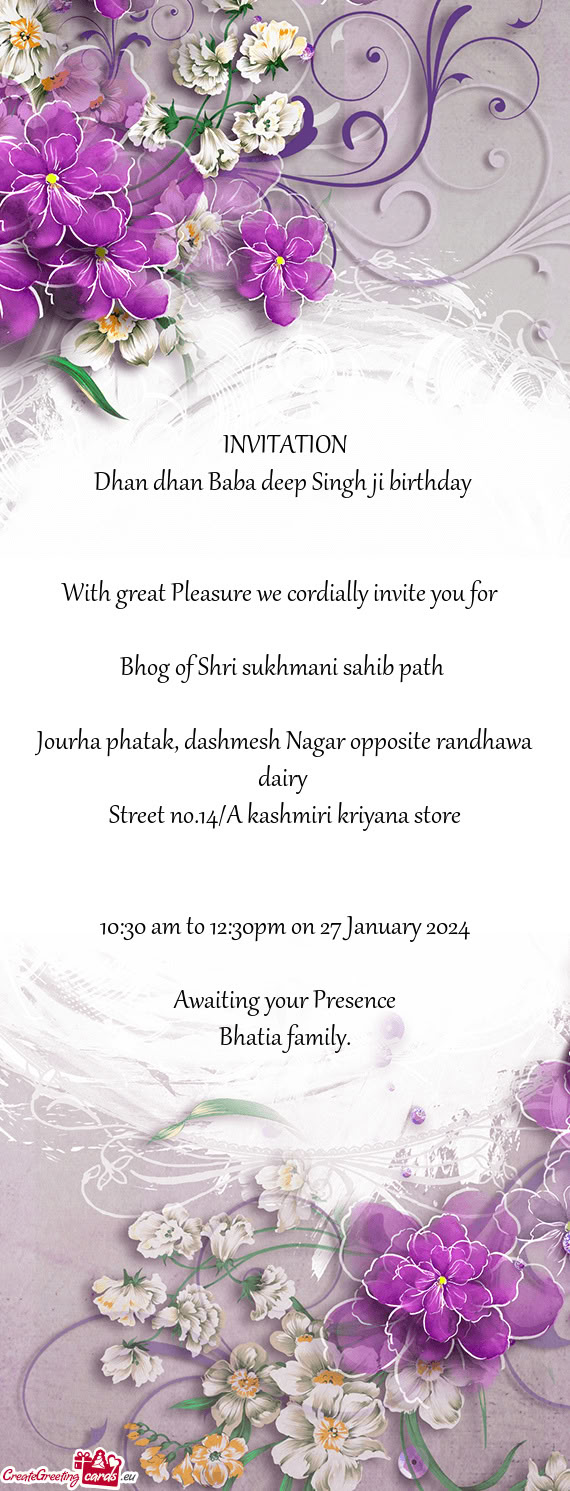 INVITATION
Dhan dhan Baba deep Singh ji birthday
With great Pleasure we cordially invite you for
Bhog of Shri sukhmani sahib path
Jourha phatak, dashmesh Nagar opposite randhawa
dairy
Street no.14/A kashmiri kriyana store
10:30 am to 12:30pm on 27 January 2024
Awaiting your Presence
Bhatia family.
CreateGreeting cards .eu